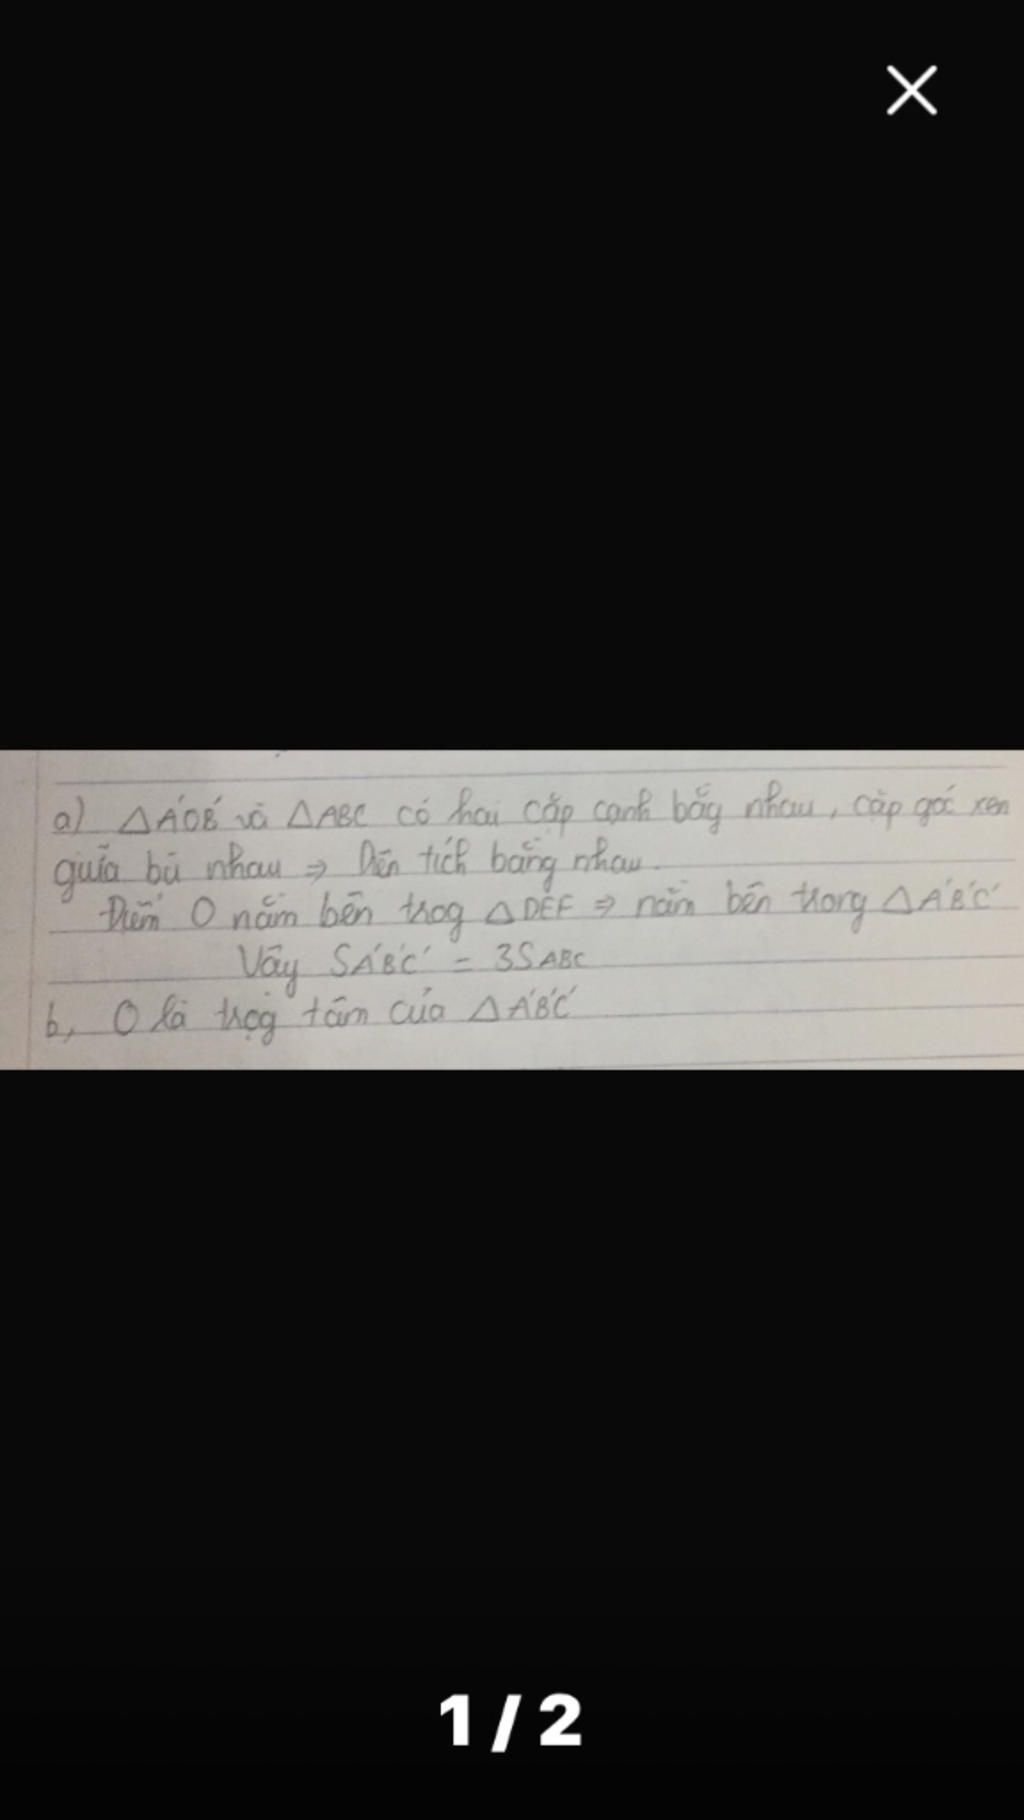 a) △A'OB' và △ABC có hai cặp cạnh bằg nhau, cặp góc xen
giữa bù nhau ⇒ Diện tích bằng nhau.
Điểm O nằm bên trog △DEF ⇒ nằm bên trong △A'B'C'
Vậy SA'B'C' = 3SABC
b, O là trọg tâm của △A'B'C'
1 / 2